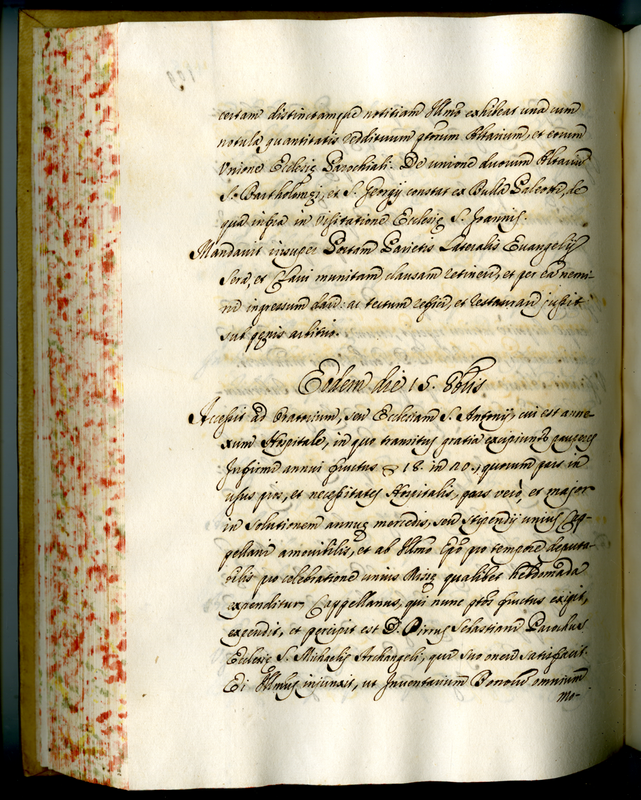 certam distinctamque notitiam Illmo exhibeat una cum
notula quantitatis reddituum ptorum Altarium, et eorum
Unione Ecclesię Parochiali. De unione duorum Altarium
S. Bartholomęi, et S. Georgij constat ex Bulla Paleotti, de
qua infra in Visitatione Ecclesię S. Joannis.
Mandavit insuper Portam Parietis Lateralis Evangelij
Sera, et Clavi munitam clausam retineri, et per eam nemi-
ni ingressum dari: ac tectum refici, et restaurari jussit
sub pęnis arbitrio.
Eodem die 15. 8bris
Accessit ad Oratorium, seu Ecclesiam S. Antonij, cui est anne-
xum Hospitale, in quo transitus gratia excipiuntur pauperes
Infirmi annui fructus 18. in 20., quorum pars in
usus pios, et necessitates Hospitalis, pars verò, et major
in Solutionem annuę mercedis, seu Stipendij unius Cap-
pellani amovibilis, et ab Illmo Epo pro tempore deputa-
bilis pro celebratione unius Missę qualibet hebdomada
expenditur. Cappellanus, qui nunc ptos fructus exigit,
expendit, et percipit est D. Sebastianus Parochus
Ecclesię S. Michaelis Archangeli, qui suo oneri satisfacit.
Ei Illmus injunxit, ut Inventarium Bonorum omnium
mo-